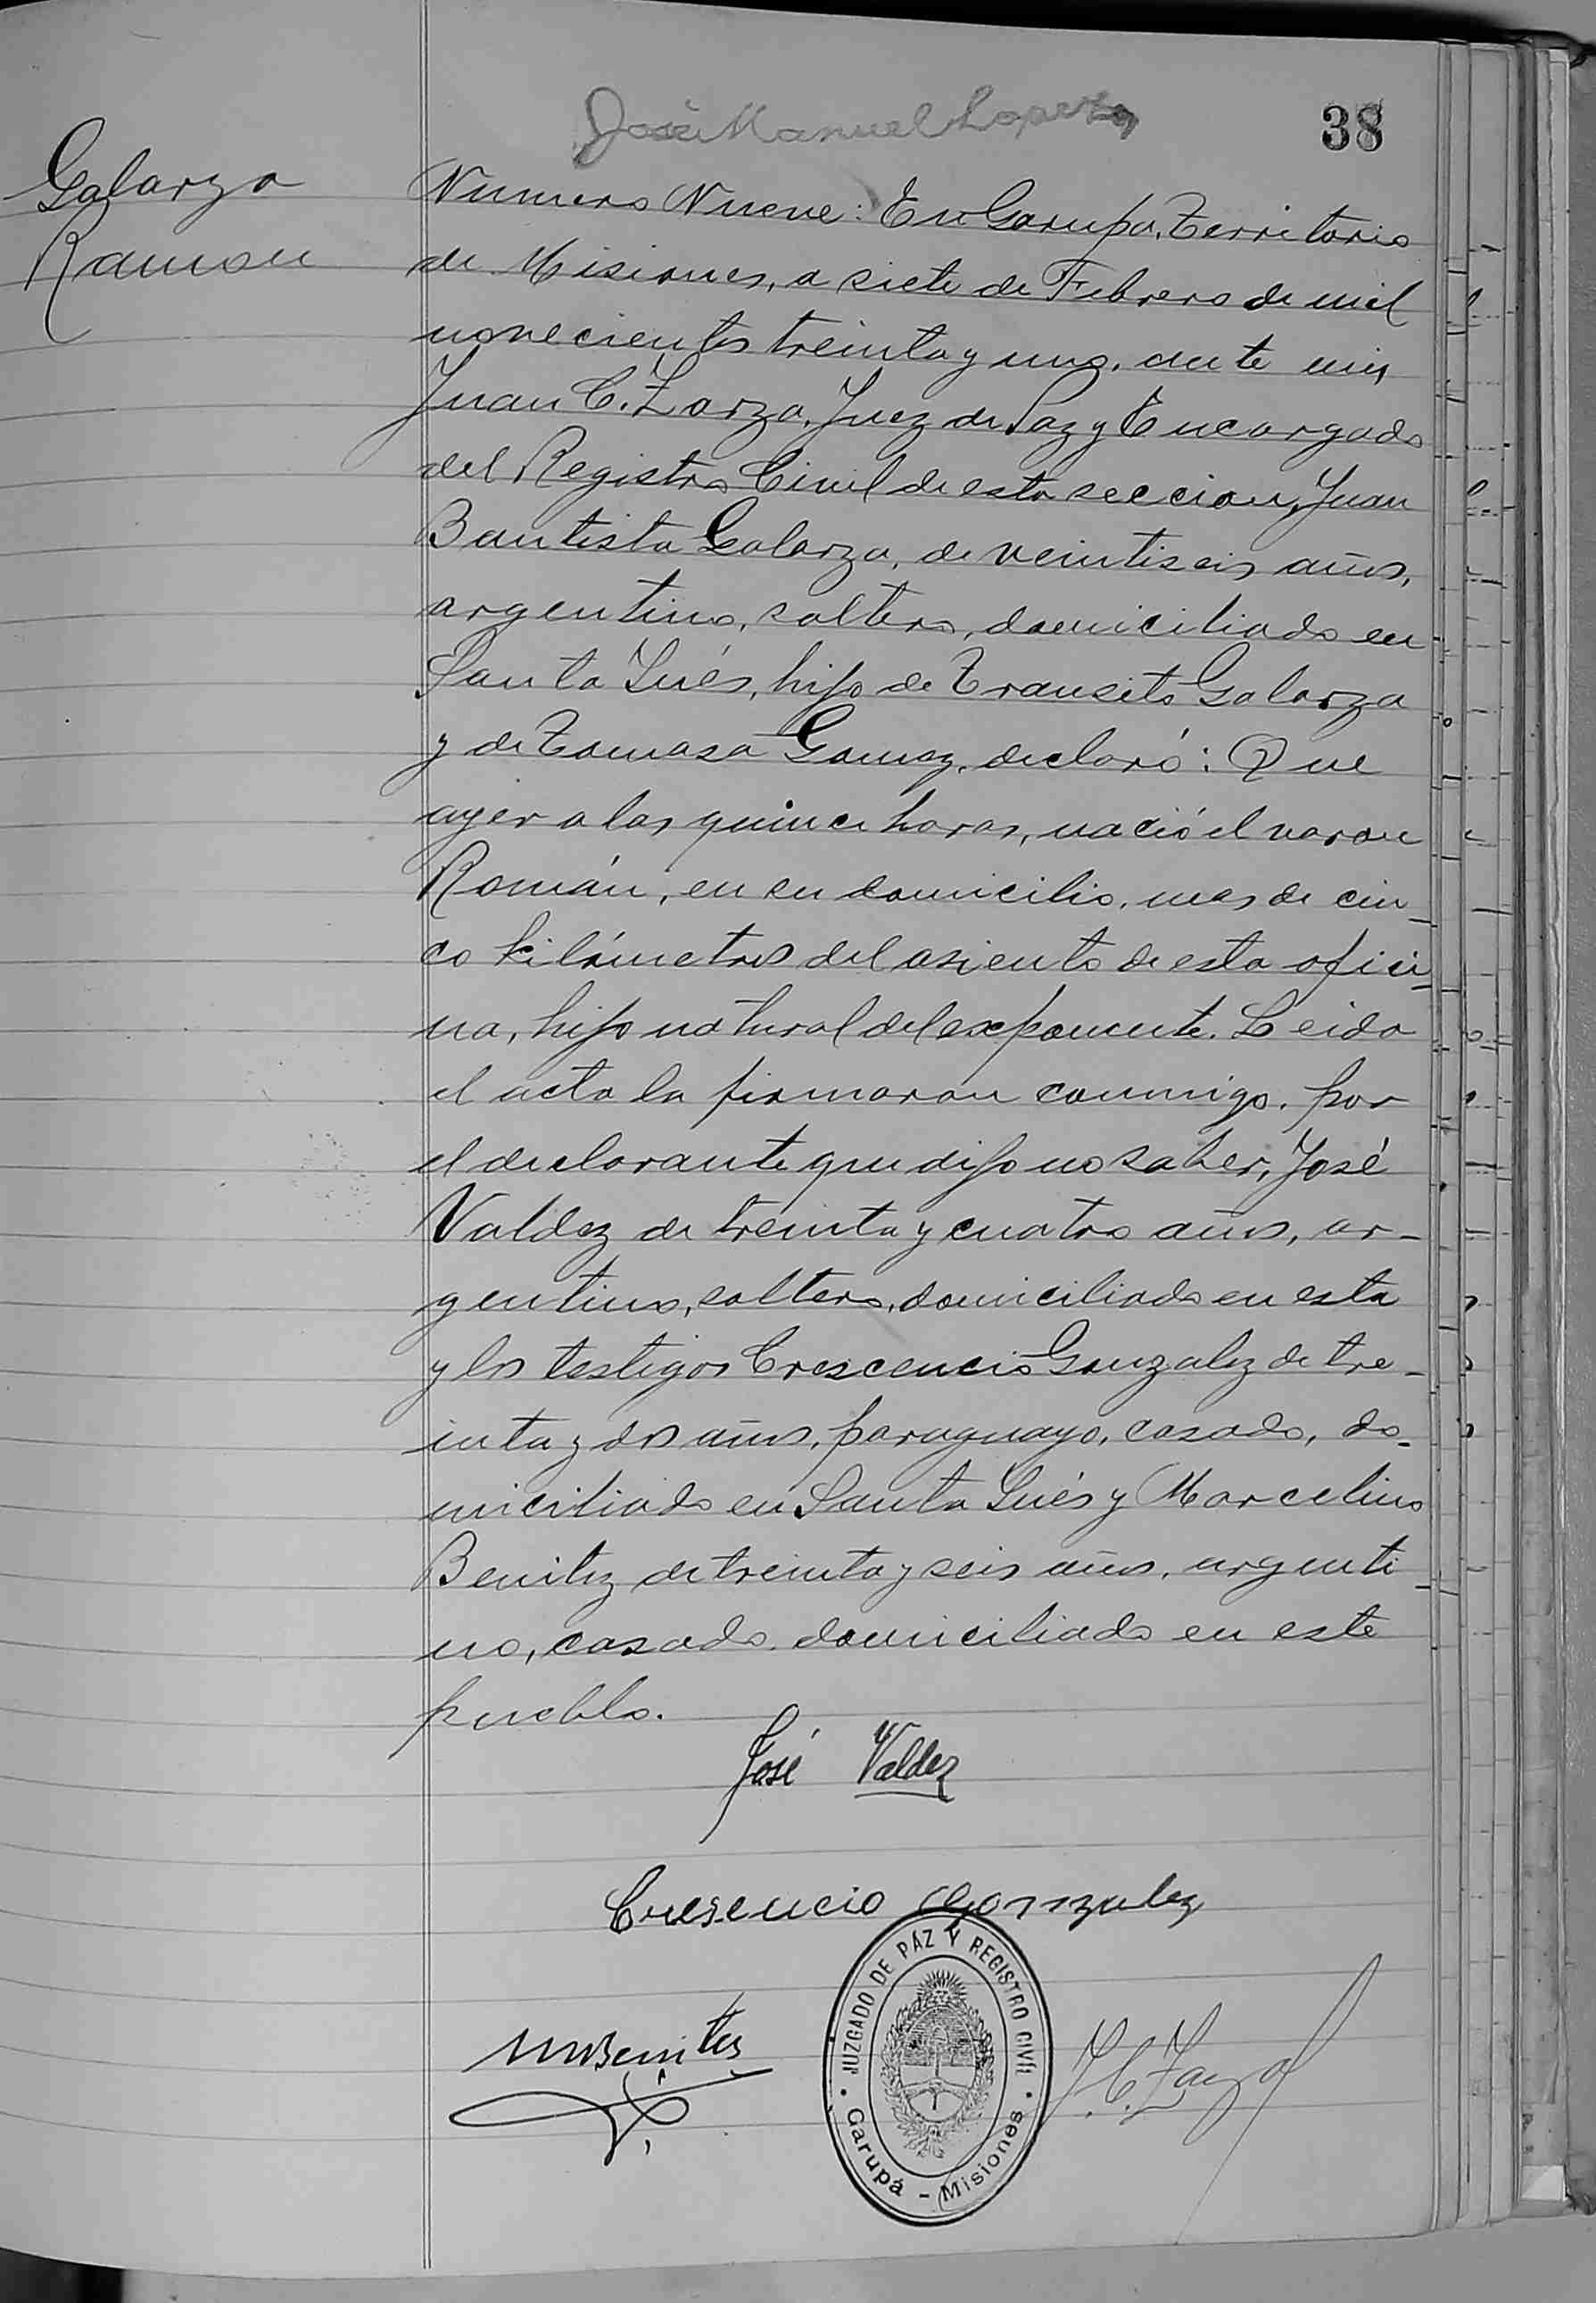 José Manuel Lopez
38
Galarza
Ramon
Numero Nueve: En Garupa, Territorio
de Misiones, a siete de Febrero de mil
novecientos treinta y uno, ante mi,
Juan C. Zarza, Juez de Paz y Encargado
del Registro Civil de esta seccion, Juan
Bautista Galarza, de veintiseis años,
argentino, soltero, domiciliado en
Santa Inés, hijo de Transito Galarza
y de Tomasa Gomez, declaró: Que
ayer a las quince horas, nació el varon
Román, en su domicilio, mas de cin-
co kilómetros del asiento de esta ofici-
na, hijo natural del exponente. Leida
el acta la firmaron conmigo, por
el declarante que dijo no saber, José
Valdez de treinta y cuatro años, ar-
gentino, soltero, domiciliado en esta
y los testigos Crescencio Gonzalez de tre-
inta y dos años, paraguayo, casado, do-
miciliado en Santa Inés y Marcelino
Benitez de treinta y seis años, argenti-
no, casado, domiciliado en este
pueblo.
José Valdez
Cresencio Gonzalez
JUZGADO DE PÁZ Y REGISTRO CIVIL
Garupá - Misiones
M Benites
J. C. Zarza